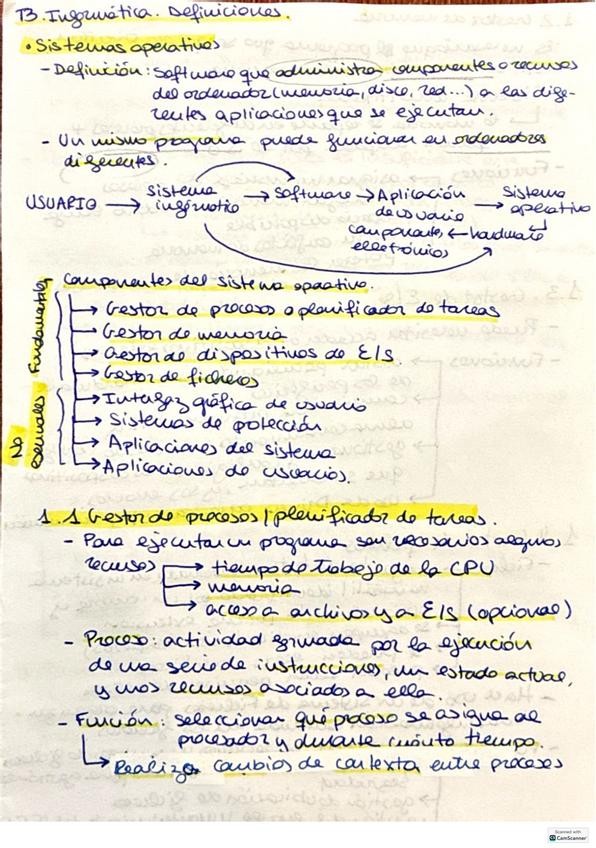 T3. Informática. Definiciones.
• Sistemas operativos
- Definición: Software que administra componentes o recursos
del ordenador (memoria, disco, red...) a las dife-
rentes aplicaciones que se ejecutan.
- Un mismo programa puede funcionar en ordenadores
diferentes.
USUARIO → Sistema informático → Software → Aplicación de usuario → Sistema operativo
componentes electrónicos ← hardware
Componentes del sistema operativo.
Fundamentales
→ Gestor de procesos o planificador de tareas
→ Gestor de memoria
→ Gestor de dispositivos de E/S.
→ Gestor de ficheros
No esenciales
→ Interfaz gráfica de usuario
→ Sistemas de protección
→ Aplicaciones del sistema
→ Aplicaciones de usuarios.
1.1 Gestor de procesos / planificador de tareas.
- Para ejecutar un programa son necesarios algunos
recursos → tiempo de trabajo de la CPU
→ memoria
→ acceso a archivos y a E/S (opcional)
- Proceso: actividad formada por la ejecución
de una serie de instrucciones, un estado actual,
y unos recursos asociados a ella.
- Función: seleccionar qué proceso se asigna al
procesador y durante cuánto tiempo.
→ Realiza cambios de contexto entre procesos
Scanned with
CamScanner